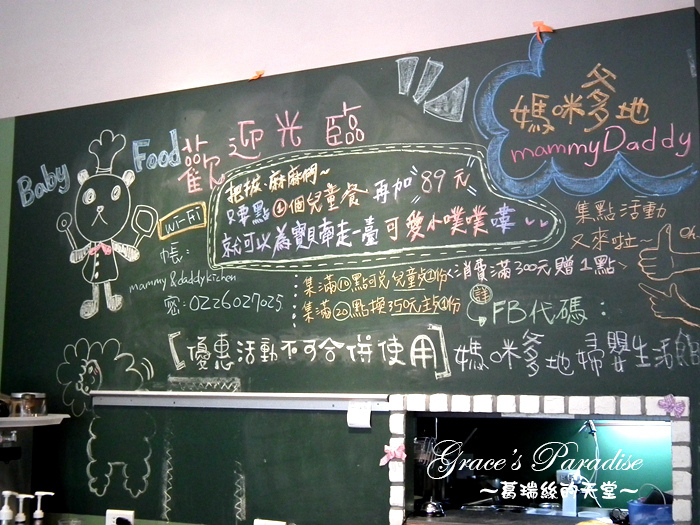 Baby Food 歡迎光臨
媽咪爹地
mammyDaddy
把拔.麻麻們~
只要點①個兒童餐 再加"89元"
就可以為寶貝牽走一臺 可愛小噗噗嘍
Wi-Fi
帳:
mammy&daddykichen
密:0226027025
集點活動
又來啦~
消費滿300元贈1點
集滿⑩點可兌兒童餐①份
集滿⑳點換350元主餐①份
FB代碼:
[優惠活動不可合併使用]
媽咪爹地婦嬰生活館
Grace's Paradise
~葛瑞絲的天堂~